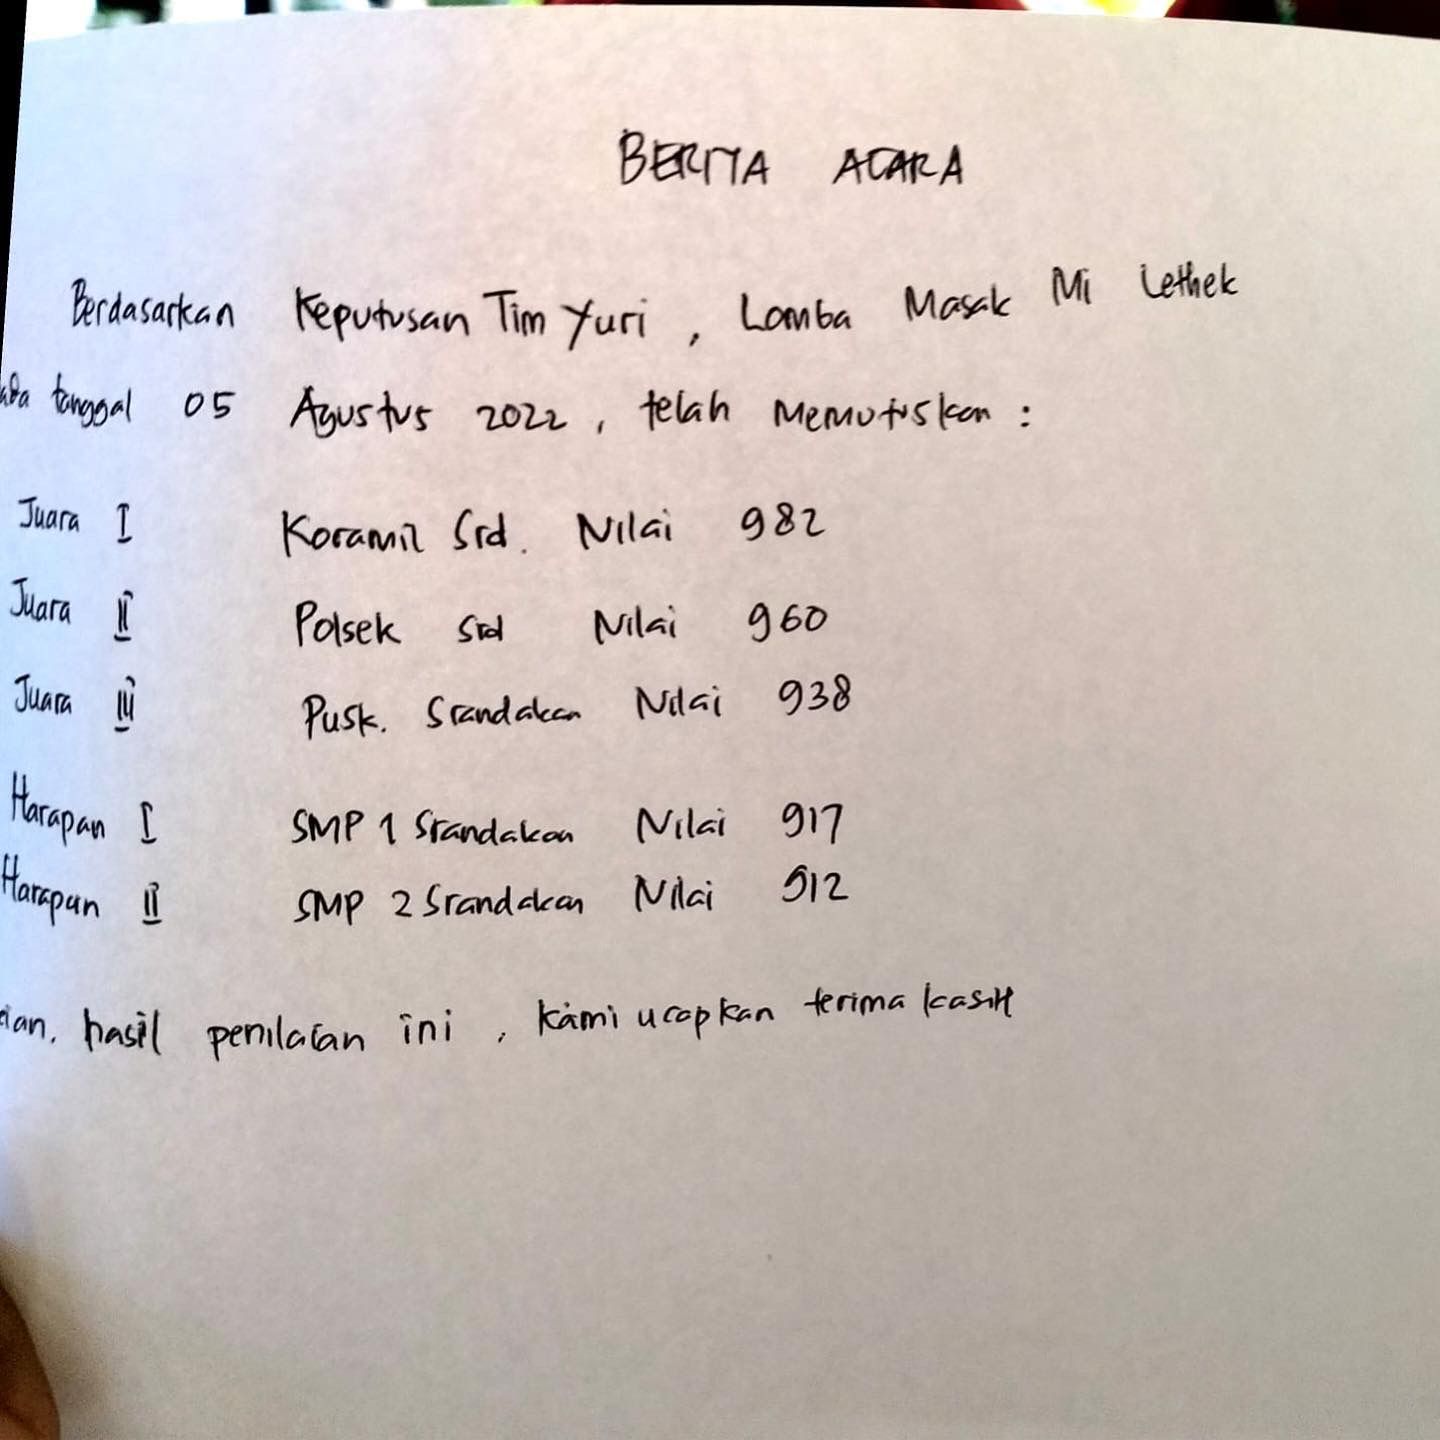 BERITA ACARA
Berdasarkan Keputusan Tim Yuri, Lomba Masak Mi Lethek
tanggal 05 Agustus 2022, telah Memutuskan :
Juara I Koramil Srd. Nilai 982
Juara II Polsek Srd Nilai 960
Juara III Pusk. Srandakan Nilai 938
Harapan I SMP 1 Srandakan Nilai 917
Harapan II SMP 2 Srandakan Nilai 912
hasil penilaian ini, kami ucapkan terima kasih